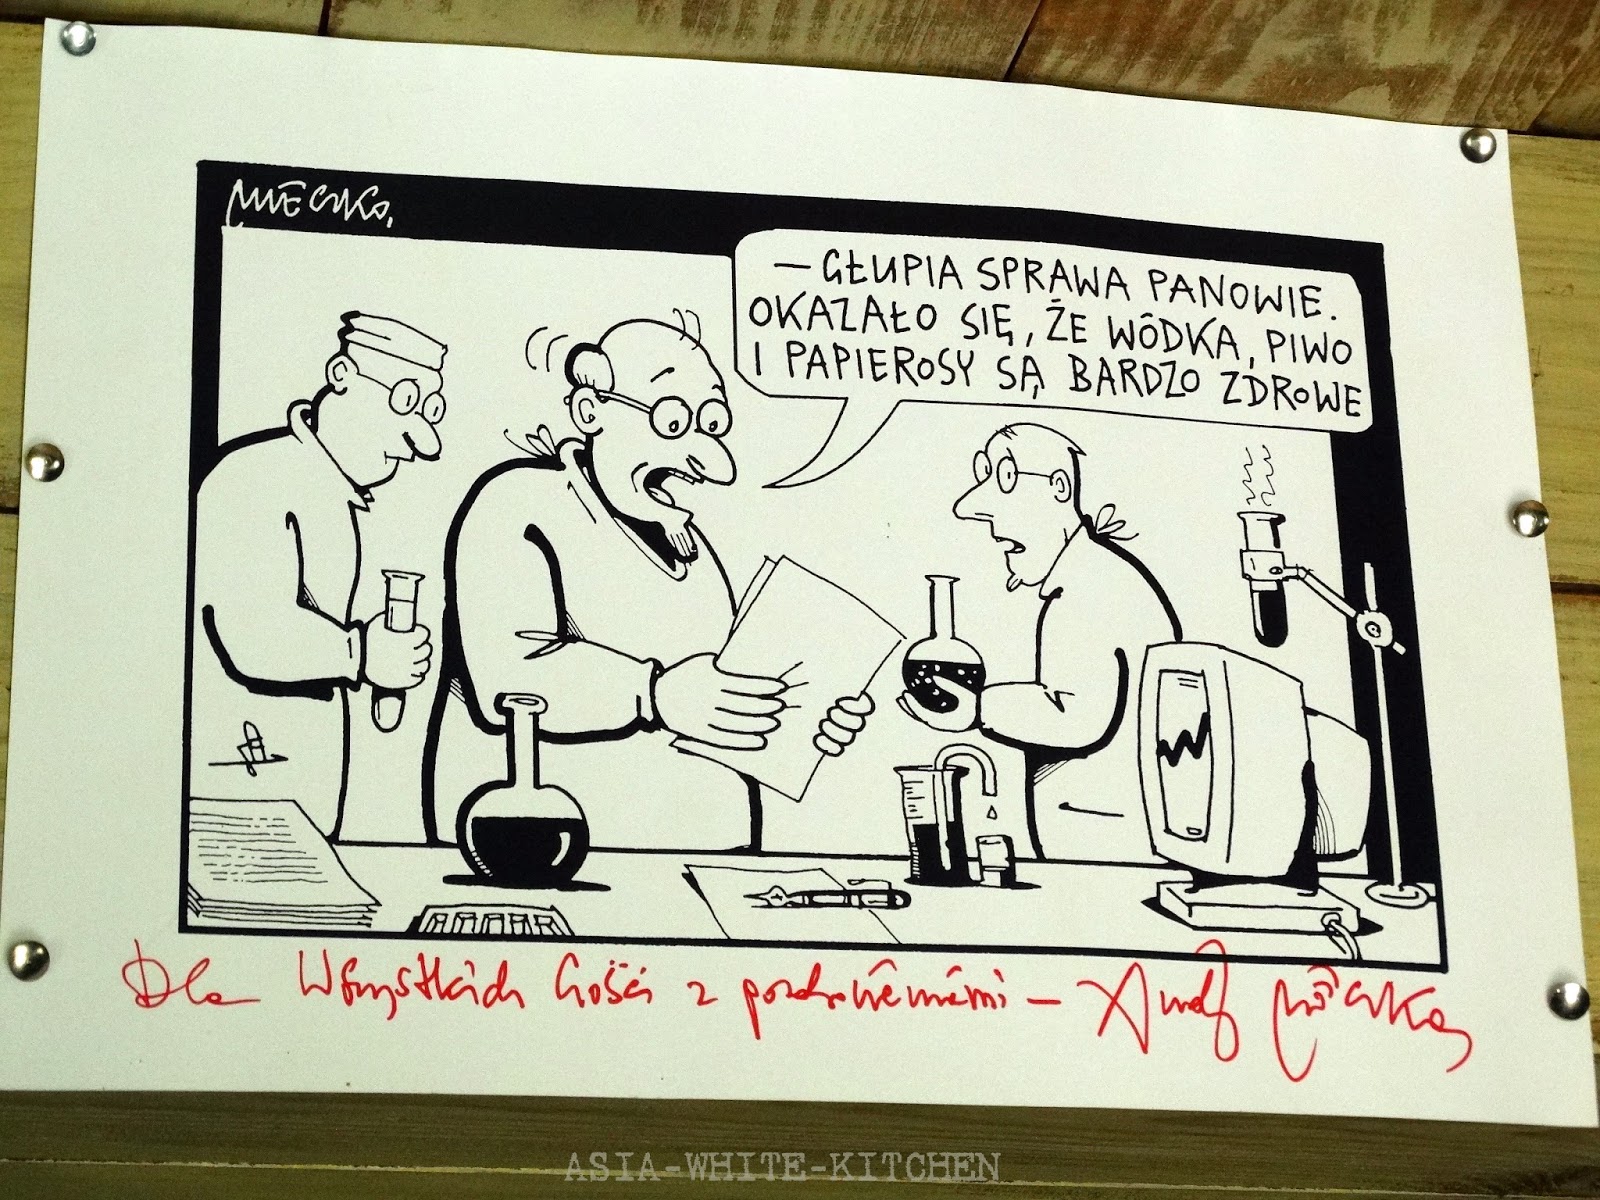 MLECZKO,
— GŁUPIA SPRAWA PANOWIE.
OKAZAŁO SIĘ, ŻE WÓDKA, PIWO
I PAPIEROSY SĄ BARDZO ZDROWE
Dla Wszystkich Gości z pozdrowieniami — Andrzej Mleczko
ASIA-WHITE-KITCHEN